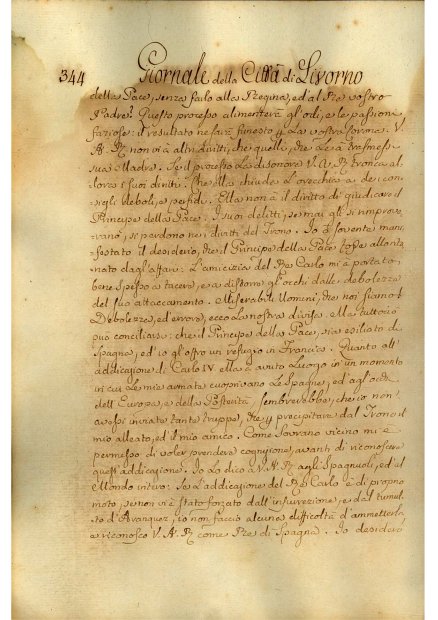 344 Giornale della Città di Livorno
della Pace, senza farlo alla Regina, ed al Re vostro
Padre? Questo processo alimenterà gl'odj, e le passioni
faziose: il resultato ne sarà funesto p la vostra Corona. V.
A. R. non vi à altri diritti, che quelli, che Le à trasmessi
sua Madre. Se il processo La disonora V. A. R. tronca al-
lora i suoi diritti. Che Ella chiuda L'orecchio a dei con-
sigli deboli, e perfidi. Ella non à il diritto di giudicare il
Principe della Pace. I suoi delitti, se mai gli si improve-
rano, si perdono nei diritti del Trono. Io ò sovente mani-
festato il desiderio, che il Principe della Pace fosse allonta-
nato dagl'affari: L'amicizia del Re Carlo mi à portato,
bene spesso a tacere, e a distorre gl'occhi dalle debolezze
del suo attaccamento. Miserabili Uomini, che noi siamo!
Debolezza, ed errore, ecco La nostra divisa. Ma tutto ciò
può conciliarsi: che il Principe della Pace, sia esiliato di
Spagna, ed io gl'offro un refugio in Francia. Quanto all'
abdicazione di Carlo IV ella à avuto Luogo in un momento
in cui Le mie armate cuoprivano Le Spagne, ed agl'occhi
dell'Europa, e della Posterità, sembrerebbe, che io non
avessi inviate tante truppe, che p precipitare dal Trono il
mio alleato, ed il mio amico. Come Sovrano vicino mi è
permesso di voler prendere cognizione, avanti di riconoscere
quest'abdicazione. Io Lo dico a V. A. R. agli Spagnuoli, ed al
Mondo intero: Se L'abdicazione del Re Carlo è di proprio
moto, se non vi è stato forzato dall'insurrezione, e dal tumul-
to d'Aranquez, io non faccio alcuna difficoltà d'ammetterla
e riconosco V. A. R. come Re di Spagna. Io desidero